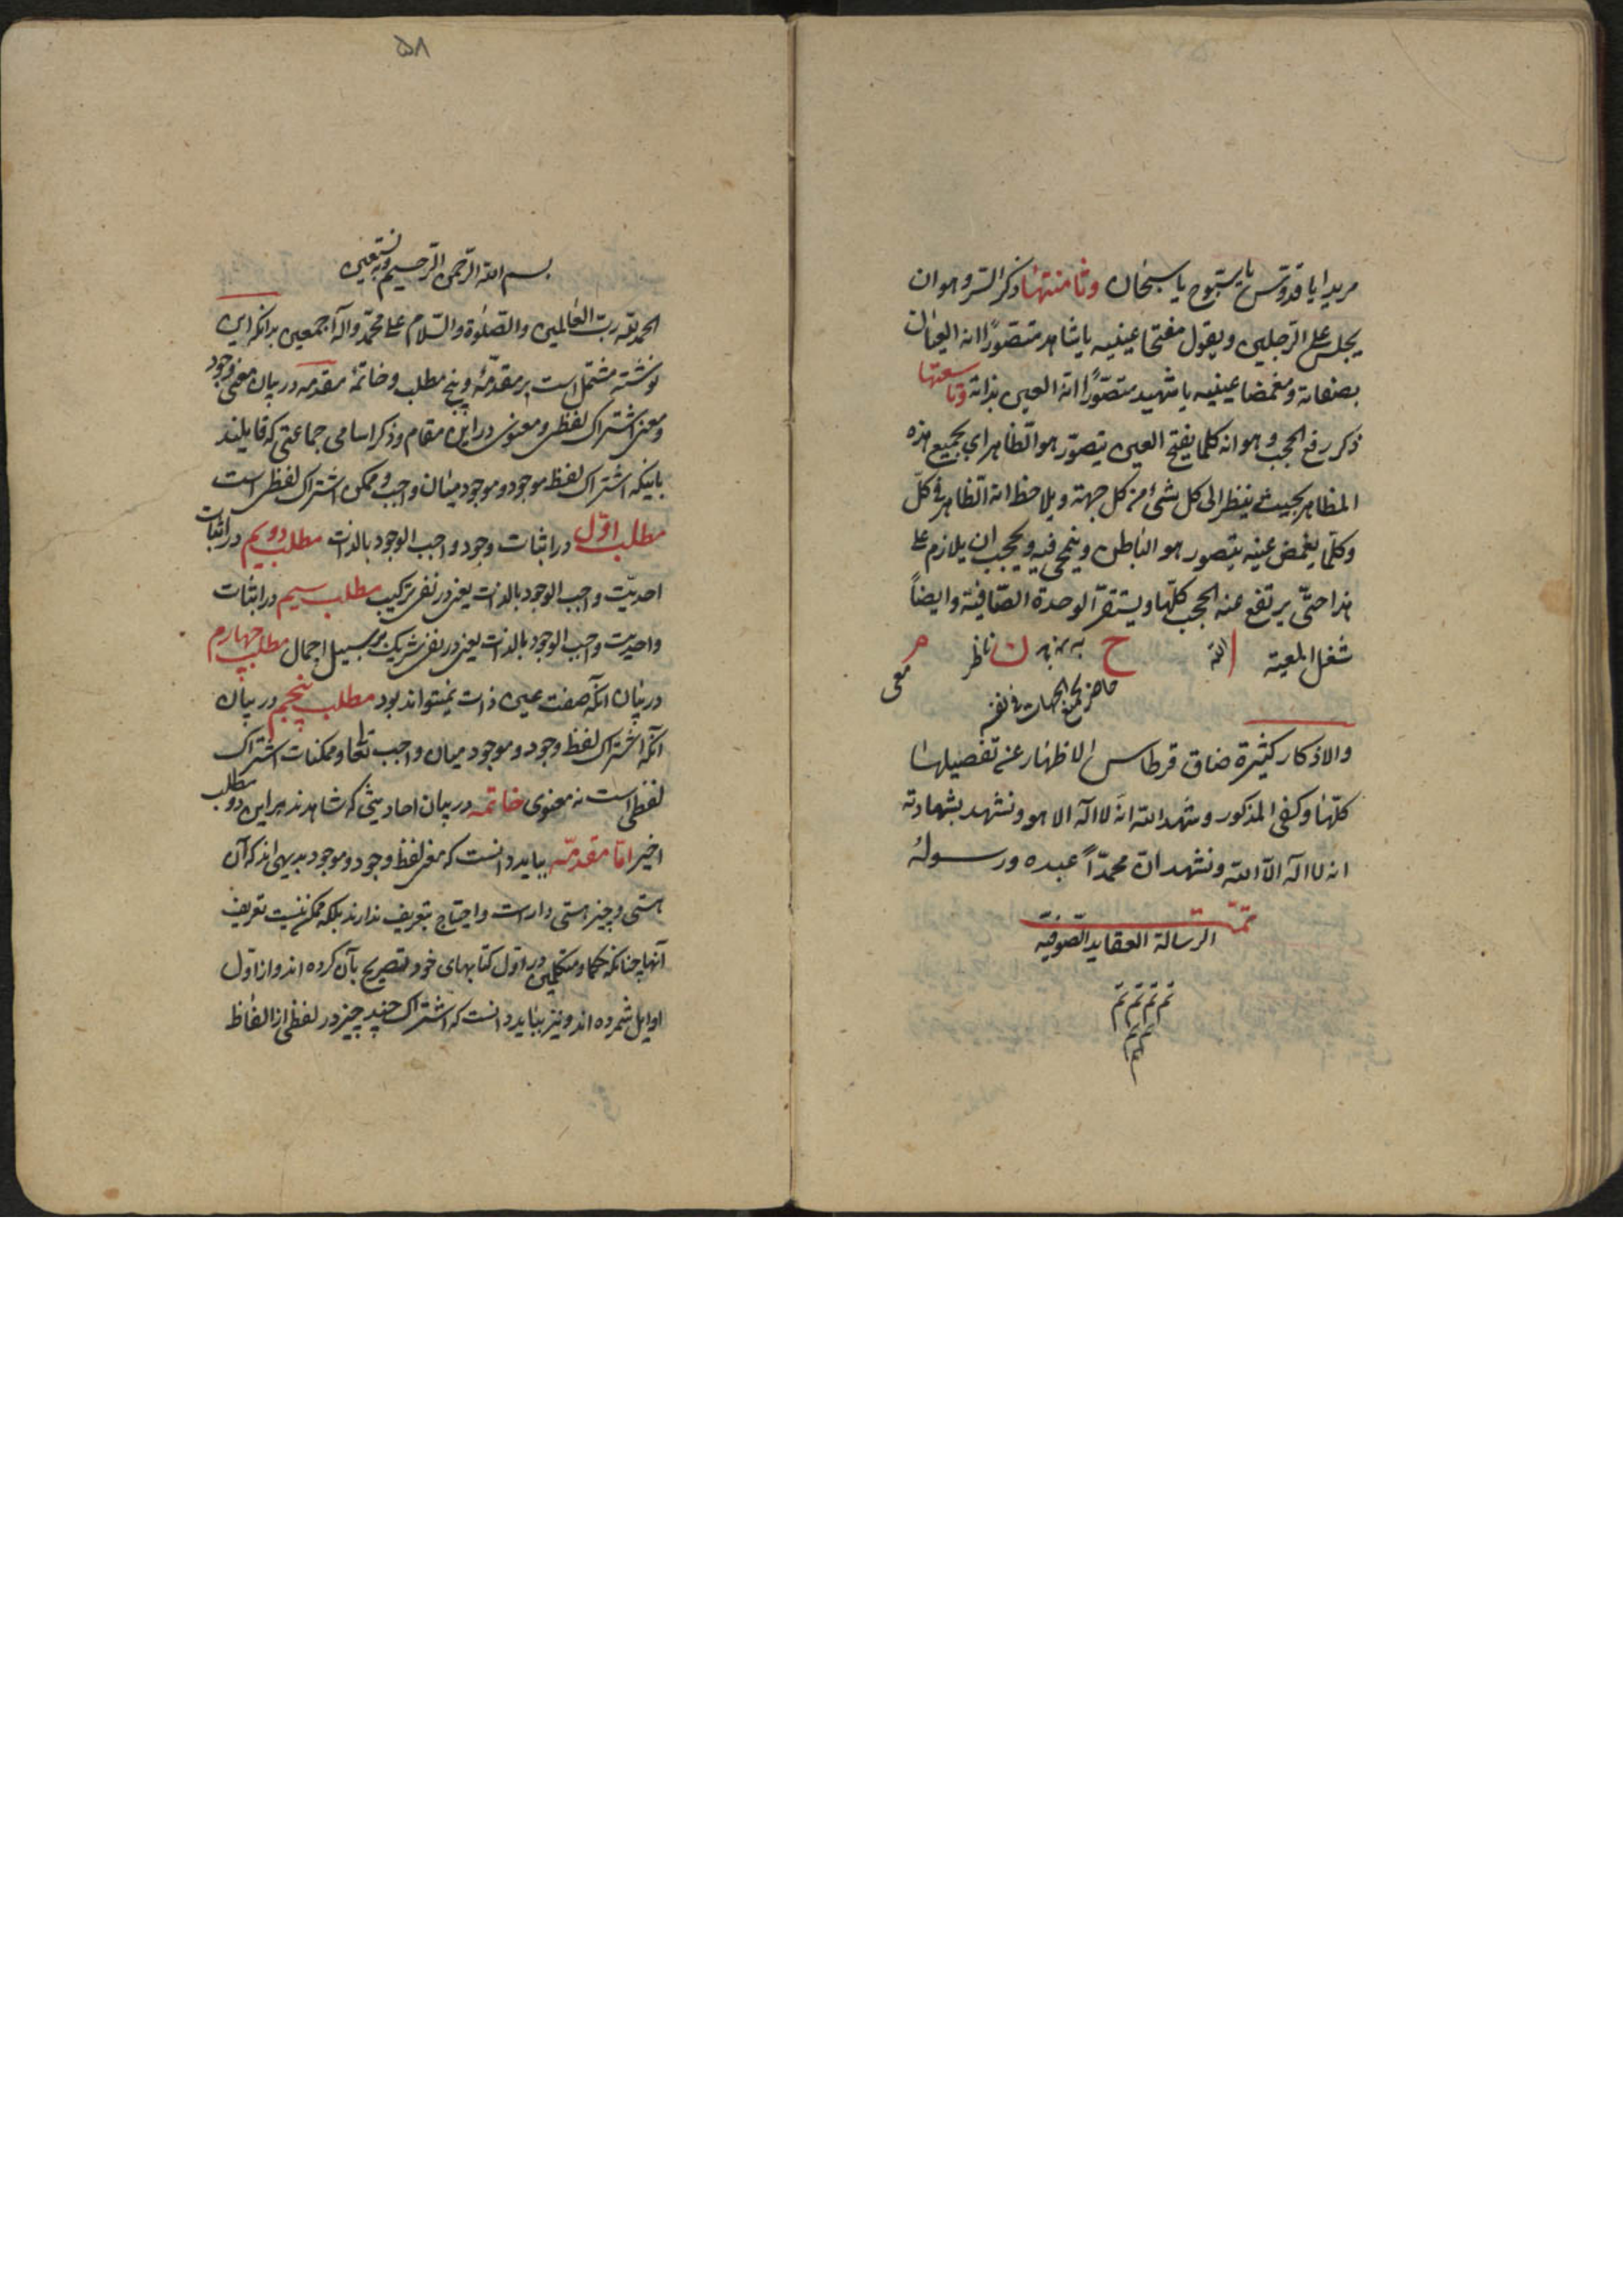 مریدا یا قدوس یا سبوح یا سبحان وثامنتها ذکر السر و هو ان
یجلس علی الرجلین و یقول مفتحا عینیه یا شاهد متصورا انه العیان
بصفاته و مغمضا عینیه یا شهید متصورا انه العین بذاته وتاسعتها
ذکر رفع الحجب و هو انه کلما یفتح العین یتصور هو الظاهر ای بجمیع هذه
المظاهر بحیث ینظر الی کل شیء من کل جهة و یلاحظ انه الظاهر فی کل
وکلما یغمض عینیه یتصور هو الباطن و ینمحی فیه و یجب ان یلازم علی
هذا حتی یرتفع عنه الحجب کلها و یستقر الوحدة الصافیة وایضاً
شغل المعیة ا الله ح ن ناظر م
حاضر معی
والاذکار کثیرة ضاق قرطاس الاظهار عن تفصیلها
کلها و کفی المذکور و شهد الله انه لا اله الا هو و نشهد بشهادته
انه لا اله الا الله و نشهد ان محمداً عبده و رسوله
تمت
الرسالة العقاید الصوفیه
تم تم تم تم
تم تم
تم
۵۸
بسم الله الرحمن الرحیم وبه نستعین
الحمد لله رب العالمین والصلوة والسلام علی محمد واله اجمعین بدانکه این
نوشته مشتمل است بر مقدمه و پنج مطلب و خاتمه مقدمه در بیان معنی وجود
و معنی اشتراک لفظی و معنوی در این مقام و ذکر اسامی جماعتی که قایلند
باینکه اشتراک لفظ موجود و موجود میان واجب و ممکن اشتراک لفظی است
مطلب اوّل در اثبات وجود واجب الوجود بالذات مطلب دویم در اثبات
احدیّت واجب الوجود بالذات یعنی در نفی ترکیب مطلب سیم در اثبات
واحدیت واجب الوجود بالذات یعنی در نفی شریک بر سبیل اجمال مطلب چهارم
در بیان آنکه صفت عین ذات نمیتواند بود مطلب پنجم در بیان
آنکه اشتراک لفظ وجود و موجود میان واجب تعا و ممکنات اشتراک
لفظی است نه معنوی خاتمه در بیان احادیثی که شاهدند بر این دو مطلب
اخیر امّا مقدمه بباید دانست که معنی لفظ وجود و موجود بدیهی اند که آن
هستی و چیز هستی دار است و احتیاج بتعریف ندارند بلکه ممکن نیست تعریف
آنها چنانکه حکما و متکلمین در اول کتابهای خود تصریح بآن کرده اند و از اول
اوایل شمرده اند و نیز بباید دانست که اشتراک چند چیز در لفظی از الفاظ